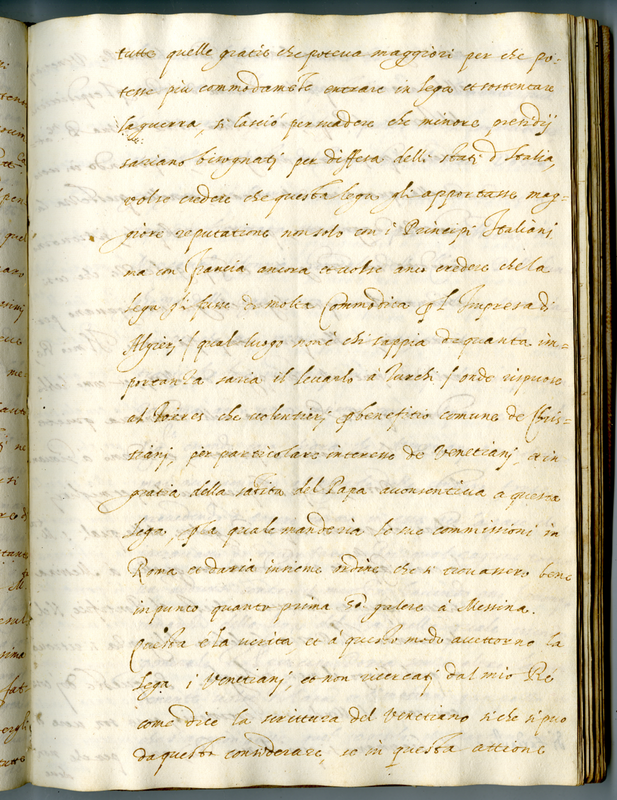 tutte quelle gratie che poteua maggiori per che po=
tesse più commodamte entrare in lega et sostentare
la guerra, si lasciò persuadere che minore prendij
sariano bisognati per diffesa delli stati d Italia,
volse credere che questa lega gli apportasse mag=
giore reputatione non solo con i Principi Italiani
ma con francia ancora et volse anco credere che la
lega gli fusse di molta Commodità p l Impresa di
Algieri (qual luogo non è chi sappia de quanta im=
portanza saria il leuarlo a Turchi) onde rispuose
al Torres che volentieri p beneficio comune de Chris=
tiani, per particolare interesse de Venetianj, et in
gratia della santità del Papa acconsentiua a questa
lega, p la quale manderia le sue commissioni in
Roma et daria insieme ordine che si trouassero bene
in punto quanto prima 50 galere à Messina.
Questa è la verità et à questo modo accettorno la
lega i Venetianj, et non ricercatj dal mio Rè
come dice la scrittura del Venetiano si che si può
da questo considerare, se in questa attione